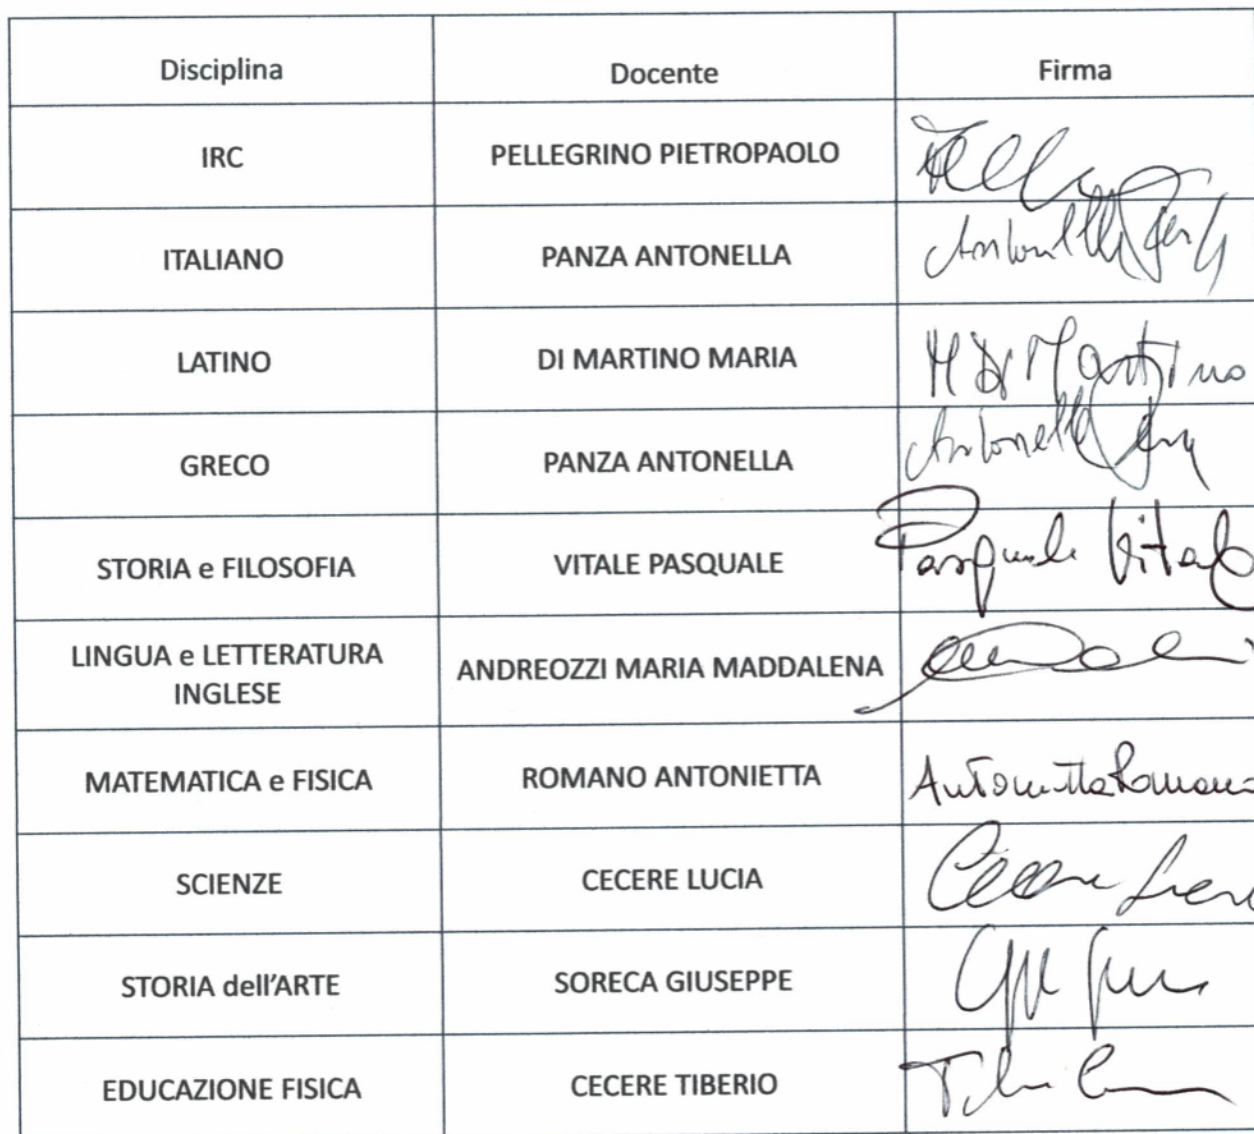 Disciplina Docente Firma
IRC PELLEGRINO PIETROPAOLO
ITALIANO PANZA ANTONELLA Antonella
LATINO DI MARTINO MARIA M Di Martino
GRECO PANZA ANTONELLA Antonella
STORIA e FILOSOFIA VITALE PASQUALE Pasquale Vitale
LINGUA e LETTERATURA
INGLESE ANDREOZZI MARIA MADDALENA
MATEMATICA e FISICA ROMANO ANTONIETTA Antonietta Romano
SCIENZE CECERE LUCIA Cecere
STORIA dell'ARTE SORECA GIUSEPPE
EDUCAZIONE FISICA CECERE TIBERIO